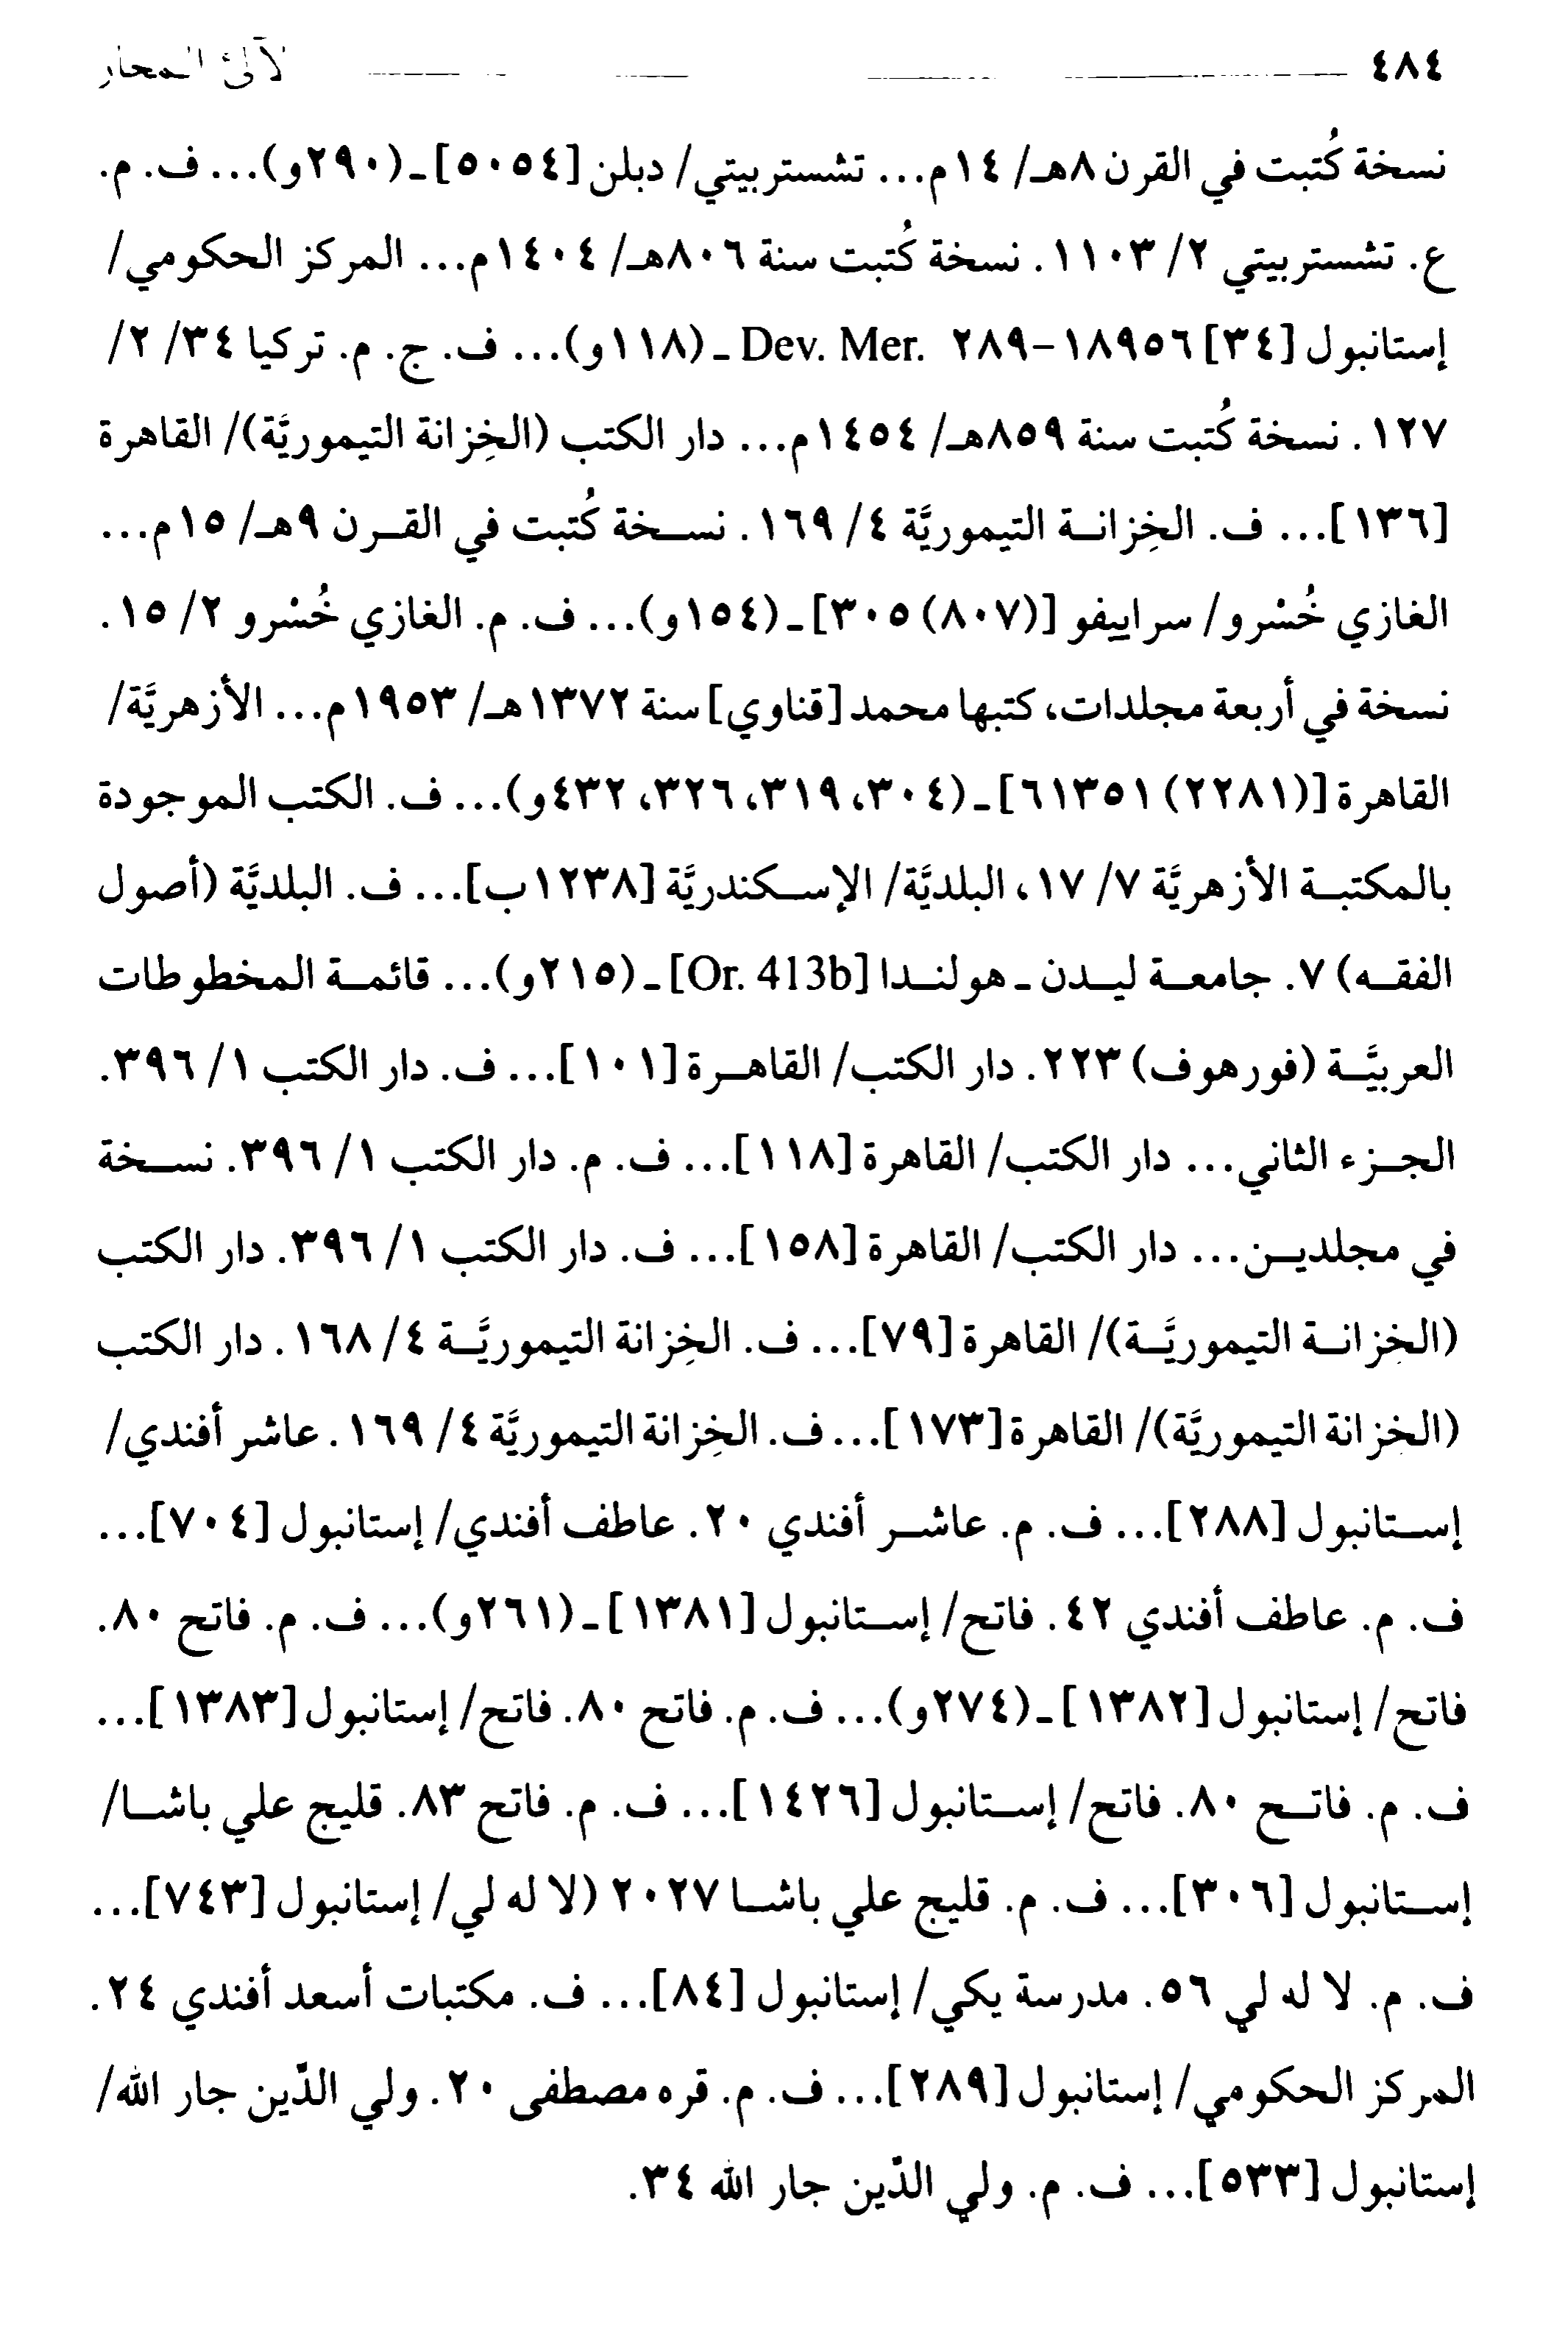 ٤٨٤ لآلئ المحار
نسخة كُتبت في القرن ٨هـ/ ١٤م... تشستربيتي/ دبلن [٥٠٥٤] ـ (٢٩٠و)... ف. م.
ع. تشستربيتي ٢/ ١١٠٣. نسخة كُتبت سنة ٨٠٦هـ/ ١٤٠٤م... المركز الحكومي/
إستانبول [٣٤] ١٨٩٥٦-٢٨٩ Dev. Mer. ـ (١١٨و)... ف. ج. م. تركيا ٣٤/ ٢/
١٢٧. نسخة كُتبت سنة ٨٥٩هـ/ ١٤٥٤م... دار الكتب (الخِزانة التيموريَّة)/ القاهرة
[١٣٦]... ف. الخِزانـة التيموريَّة ٤/ ١٦٩. نسـخة كُتبت في القـرن ٩هـ/ ١٥م...
الغازي خُسْرو/ سراييفو [(٨٠٧) ٣٠٥] ـ (١٥٤و)... ف. م. الغازي خُسْرو ٢/ ١٥.
نسخة في أربعة مجلدات، كتبها محمد [قناوي] سنة ١٣٧٢هـ/ ١٩٥٣م... الأزهريَّة/
القاهرة [(٢٢٨١) ٦١٣٥١] ـ (٣٠٤، ٣١٩، ٣٢٦، ٤٣٢و)... ف. الكتب الموجودة
بالمكتبـة الأزهريَّة ٧/ ١٧، البلديَّة/ الإسـكندريَّة [١٢٣٨ب]... ف. البلديَّة (أصول
الفقـه) ٧. جامعـة ليـدن ـ هولنـدا [Or. 413b] ـ (٢١٥و)... قائمـة المخطوطات
العربيَّـة (فورهوف) ٢٢٣. دار الكتب/ القاهـرة [١٠١]... ف. دار الكتب ١/ ٣٩٦.
الجـزء الثاني... دار الكتب/ القاهرة [١١٨]... ف. م. دار الكتب ١/ ٣٩٦. نسـخة
في مجلديـن... دار الكتب/ القاهرة [١٥٨]... ف. دار الكتب ١/ ٣٩٦. دار الكتب
(الخِزانـة التيموريَّـة)/ القاهرة [٧٩]... ف. الخِزانة التيموريَّـة ٤/ ١٦٨. دار الكتب
(الخِزانة التيموريَّة)/ القاهرة [١٧٣]... ف. الخِزانة التيموريَّة ٤/ ١٦٩. عاشر أفندي/
إسـتانبول [٢٨٨]... ف. م. عاشـر أفندي ٢٠. عاطف أفندي/ إستانبول [٧٠٤]...
ف. م. عاطف أفندي ٤٢. فاتح/ إسـتانبول [١٣٨١] ـ (٢٦١و)... ف. م. فاتح ٨٠.
فاتح/ إستانبول [١٣٨٢] ـ (٢٧٤و)... ف. م. فاتح ٨٠. فاتح/ إستانبول [١٣٨٣]...
ف. م. فاتـح ٨٠. فاتح/ إسـتانبول [١٤٢٦]... ف. م. فاتح ٨٣. قليج علي باشـا/
إسـتانبول [٣٠٦]... ف. م. قليج علي باشـا ٢٠٢٧ (لا له لي/ إستانبول [٧٤٣]...
ف. م. لا له لي ٥٦. مدرسة يكي/ إستانبول [٨٤]... ف. مكتبات أسعد أفندي ٢٤.
المركز الحكومي/ إستانبول [٢٨٩]... ف. م. قره مصطفى ٢٠. ولي الدّين جار الله/
إستانبول [٥٣٣]... ف. م. ولي الدّين جار الله ٣٤.